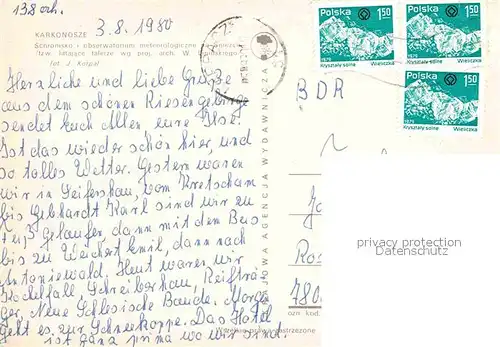 138 orh.
3.8.1980
KARKONOSZE
Schronisko i obserwatorium meteorologiczne na Śnieżce
tzw. latające talerze wg proj. arch. W.
fot. J. Kolpa
Herzliche und liebe Grüße
aus dem schönen Riesengebirge
sendet Euch Allen eure Ilse.
Ist das wieder schön hier, und
so tolles Wetter. Gestern waren
wir in Seifershau, vom Kretscham
bis Gebhardt Karl sind wir zu
Fuß gelaufen dann mit dem Bus
bis zu Weichert Emil, dann nach
Antoniewald. Heut waren wir
Kochelfall, Schreiberhau, Reifträ-
ger, Neue Schlesische Baude. Morgen
geht es zur Schneekoppe. Das Hotel
ist ganz prima wo wir sind.
AGENCJA WYDAWNICZA
zastrzeżone
Polska 1,50
1979
Kryształy solne Wieliczka
Polska 1,50
1979
Kryształy solne Wieliczka
Polska 1,50
1979
Kryształy solne Wieliczka
BDR
780
ozn. kod.
privacy protection
Datenschutz